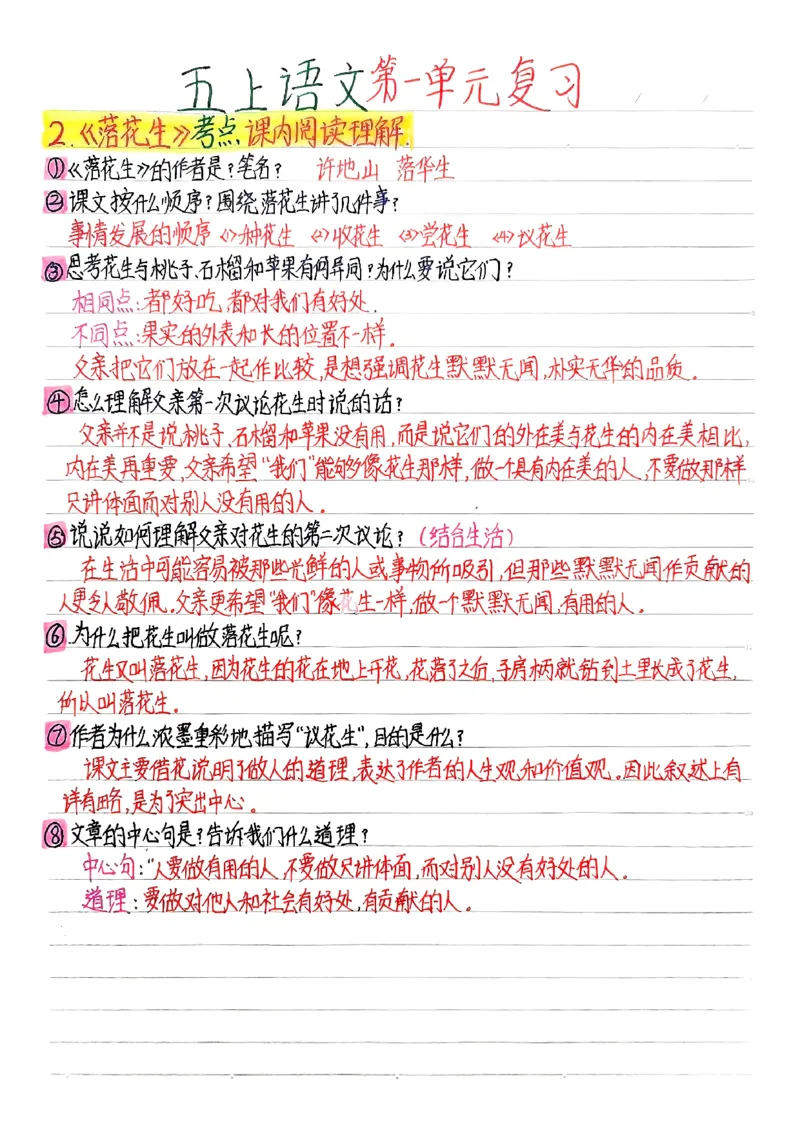 五上语文第一单元复习
2.《落花生》考点 课内阅读理解.
①《落花生》的作者是?笔名? 许地山 落华生
②课文按什么顺序?围绕落花生讲了几件事?
事情发展的顺序 <1>种花生 <2>收花生 <3>尝花生 <4>议花生
③思考花生与桃子、石榴和苹果有何异同?为什么要说它们?
相同点:都好吃,都对我们有好处.
不同点:果实的外表和长的位置不一样。
父亲把它们放在一起作比较,是想强调花生默默无闻,朴实无华的品质。
④怎么理解父亲第一次议论花生时说的话?
父亲并不是说桃子、石榴和苹果没有用,而是说它们的外在美与花生的内在美相比,
内在美再重要,父亲希望“我们”能够像花生那样,做一个具有内在美的人,不要做那样
只讲体面而对别人没有用的人。
⑤说说如何理解父亲对花生的第二次议论?(结合生活)
在生活中可能容易被那些光鲜的人或事物所吸引,但那些默默无闻作贡献的
人更令人敬佩。父亲更希望“我们”像花生一样,做一个默默无闻,有用的人。
⑥.为什么把花生叫做落花生呢?
花生又叫落花生,因为花生的花在地上开花,花落了之后,子房柄就钻到土里长成了花生,
所以叫落花生。
⑦作者为什么浓墨重彩地描写“议花生”,目的是什么?
课文主要借花说明了做人的道理,表达了作者的人生观和价值观。因此叙述上有
详有略,是为了突出中心。
⑧文章的中心句是?告诉我们什么道理?
中心句:“人要做有用的人,不要做只讲体面,而对别人没有好处的人。
道理:要做对他人和社会有好处,有贡献的人。